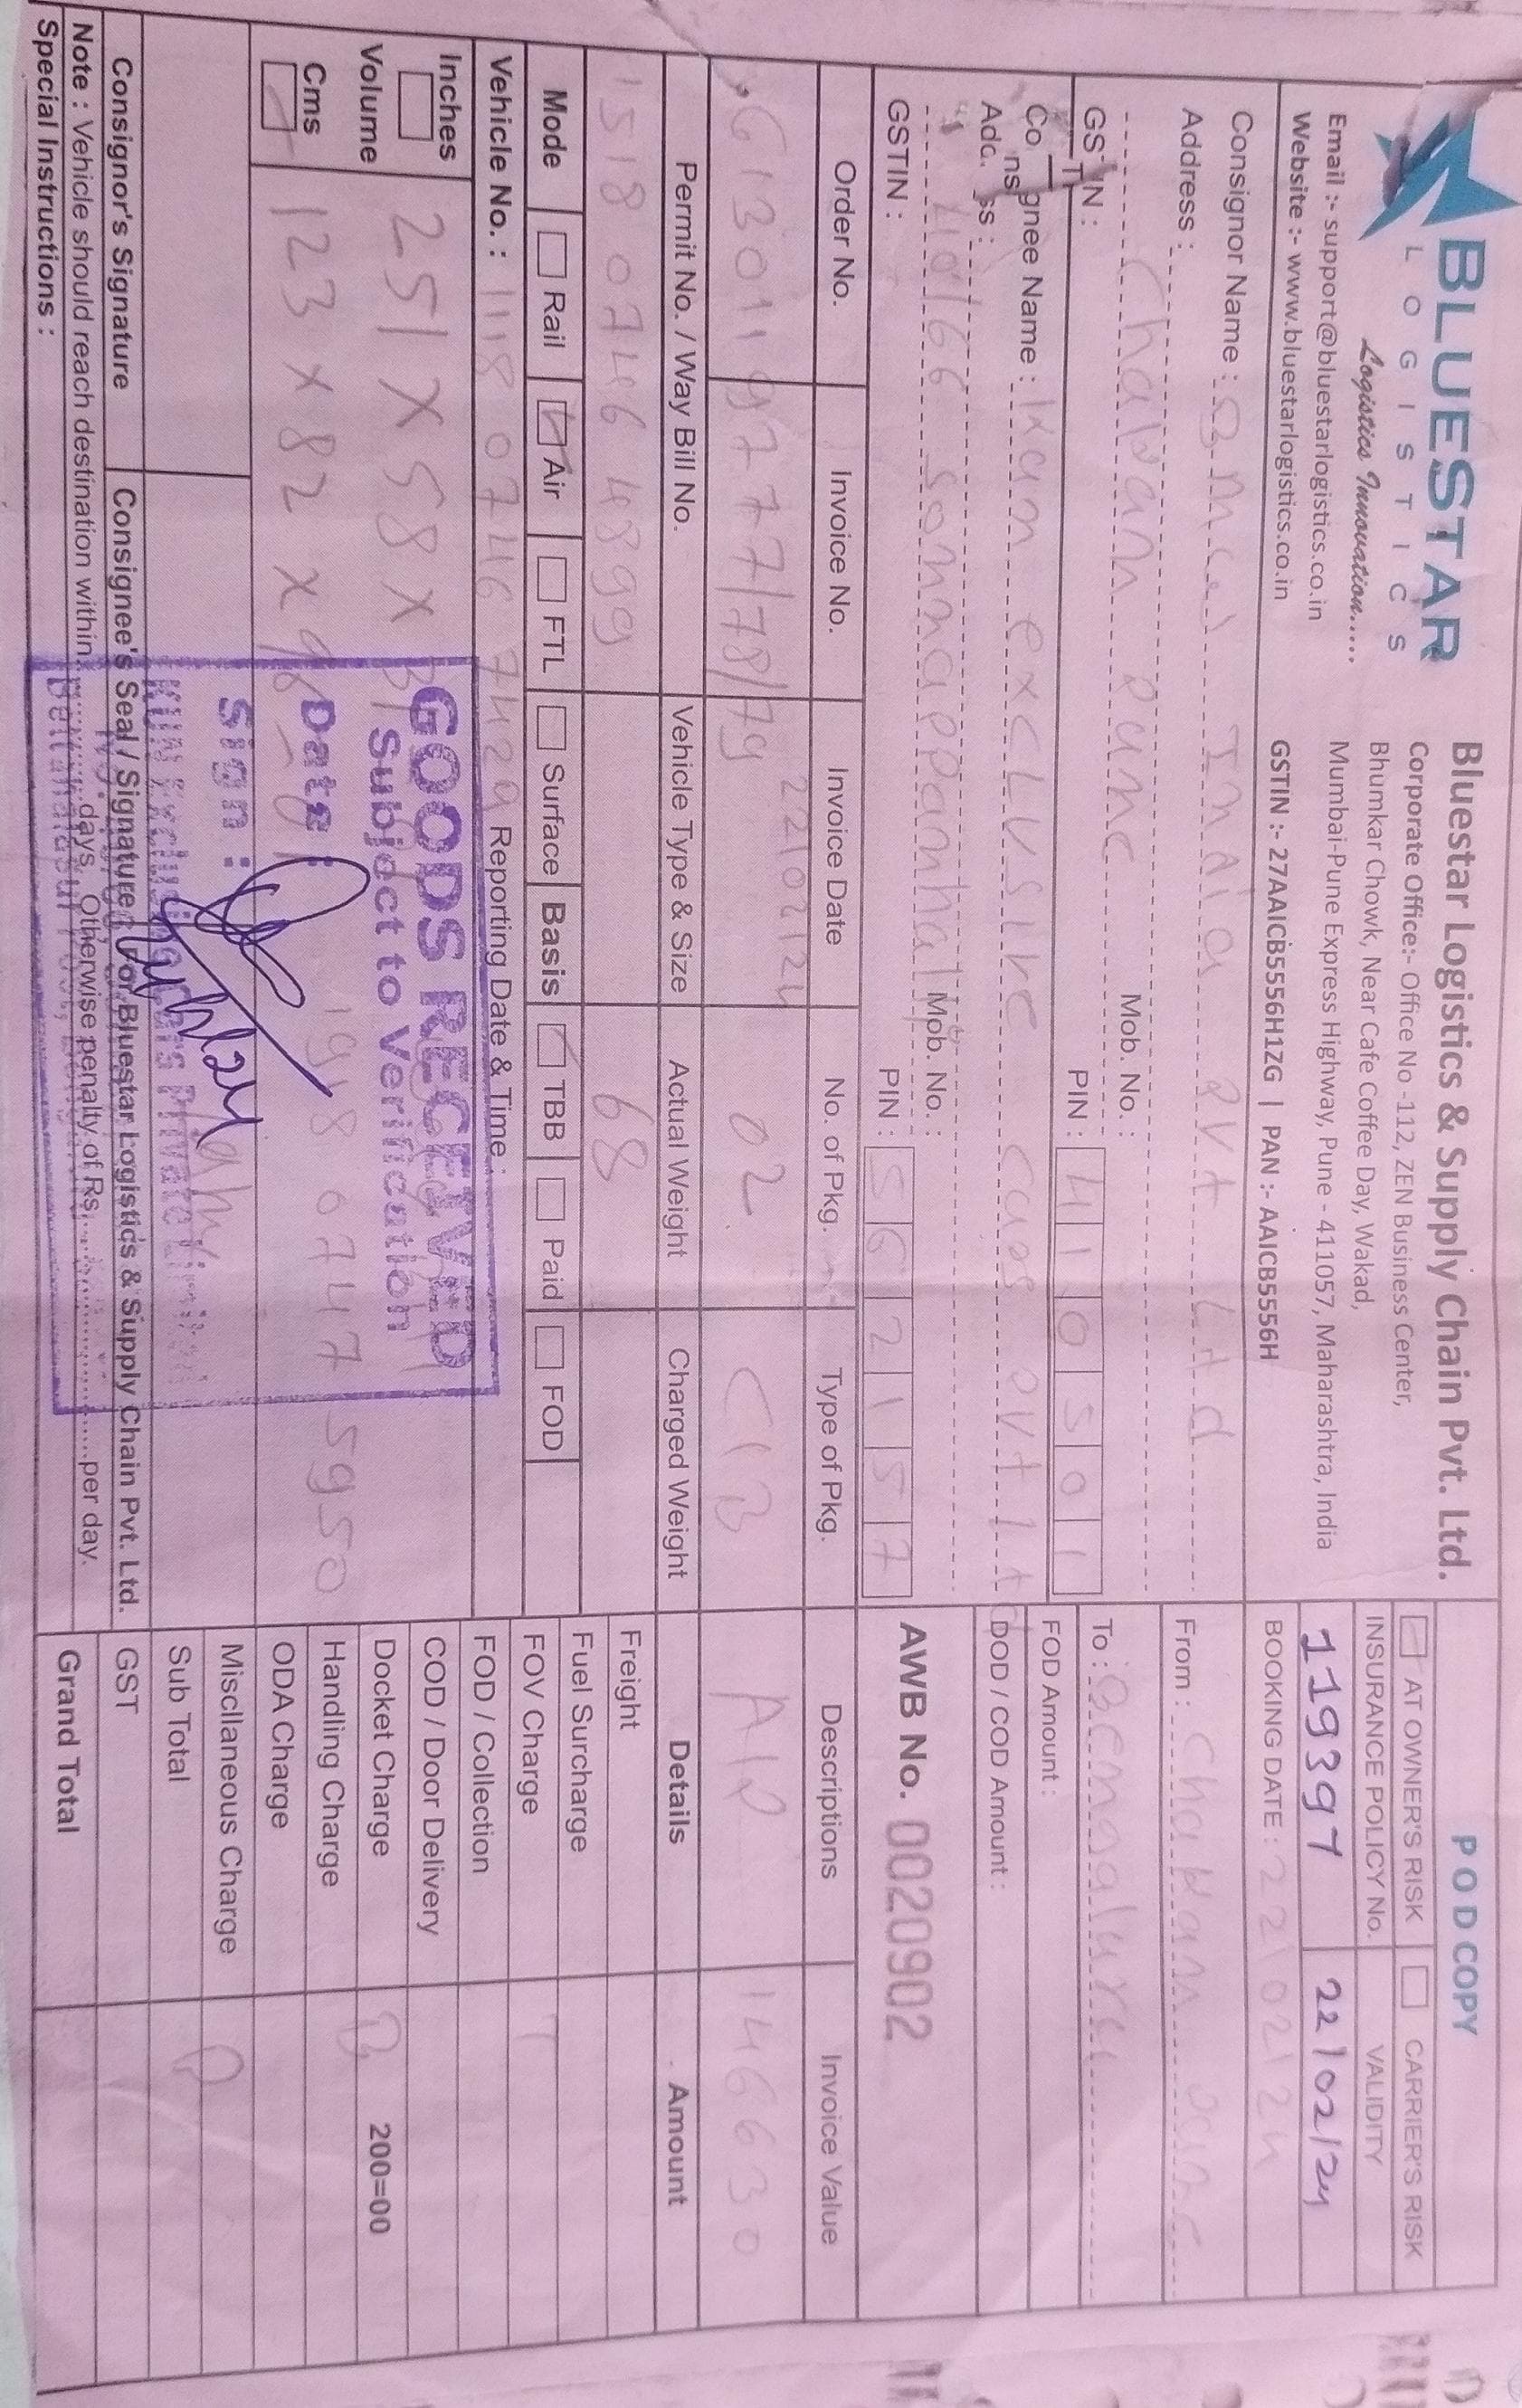 BLUESTAR
LOGISTICS
Logistics Innovation.....
Email :- support@bluestarlogistics.co.in
Website :- www.bluestarlogistics.co.in
Bluestar Logistics & Supply Chain Pvt. Ltd.
Corporate Office:- Office No -112, ZEN Business Center,
Bhumkar Chowk, Near Cafe Coffee Day, Wakad,
Mumbai-Pune Express Highway, Pune - 411057, Maharashtra, India
GSTIN :- 27AAICB5556H1ZG | PAN :- AAICB5556H
POD COPY
AT OWNER'S RISK CARRIER'S RISK
INSURANCE POLICY No. VALIDITY
119397 22/02/24
BOOKING DATE : 22/02/24
Consignor Name : India Pvt Ltd
Address :
Chakan Pune Mob. No. :
GSTIN : PIN : 410501
From : Chakan Pune
To : Bengaluru
FOD Amount :
DOD / COD Amount :
AWB No. 0020902
Consignee Name : Kun exclusive cars Pvt Ltd
Address :
40/66 Sonnappanhalli Mob. No. :
GSTIN : PIN : 562157
Order No. Invoice No. Invoice Date No. of Pkg. Type of Pkg. Descriptions Invoice Value
6130119777/78/79 22/02/24 02 C/B 146630
Permit No. / Way Bill No. Vehicle Type & Size Actual Weight Charged Weight Details Amount
1518 0746 4899 68
Mode Rail Air FTL Surface Basis TBB Paid FOD
Vehicle No. : 1118 0746 7429 Reporting Date & Time :
Inches
251 X 58 X
Volume
Cms
123 X 82 X 96
1918 0747 5950
GOODS RECEIVED
Subject to Verification
Date :
Sign :
KUN Exclusive Cars Private Limited
Bettahalasur Post,
Consignor's Signature Consignee's Seal / Signature For Bluestar Logistics & Supply Chain Pvt. Ltd.
Note : Vehicle should reach destination within ............ days, Otherwise penalty of Rs. ............ per day.
Special Instructions :
Freight
Fuel Surcharge
FOV Charge
FOD / Collection
COD / Door Delivery
Docket Charge 200=00
Handling Charge
ODA Charge
Miscllaneous Charge
Sub Total
GST
Grand Total